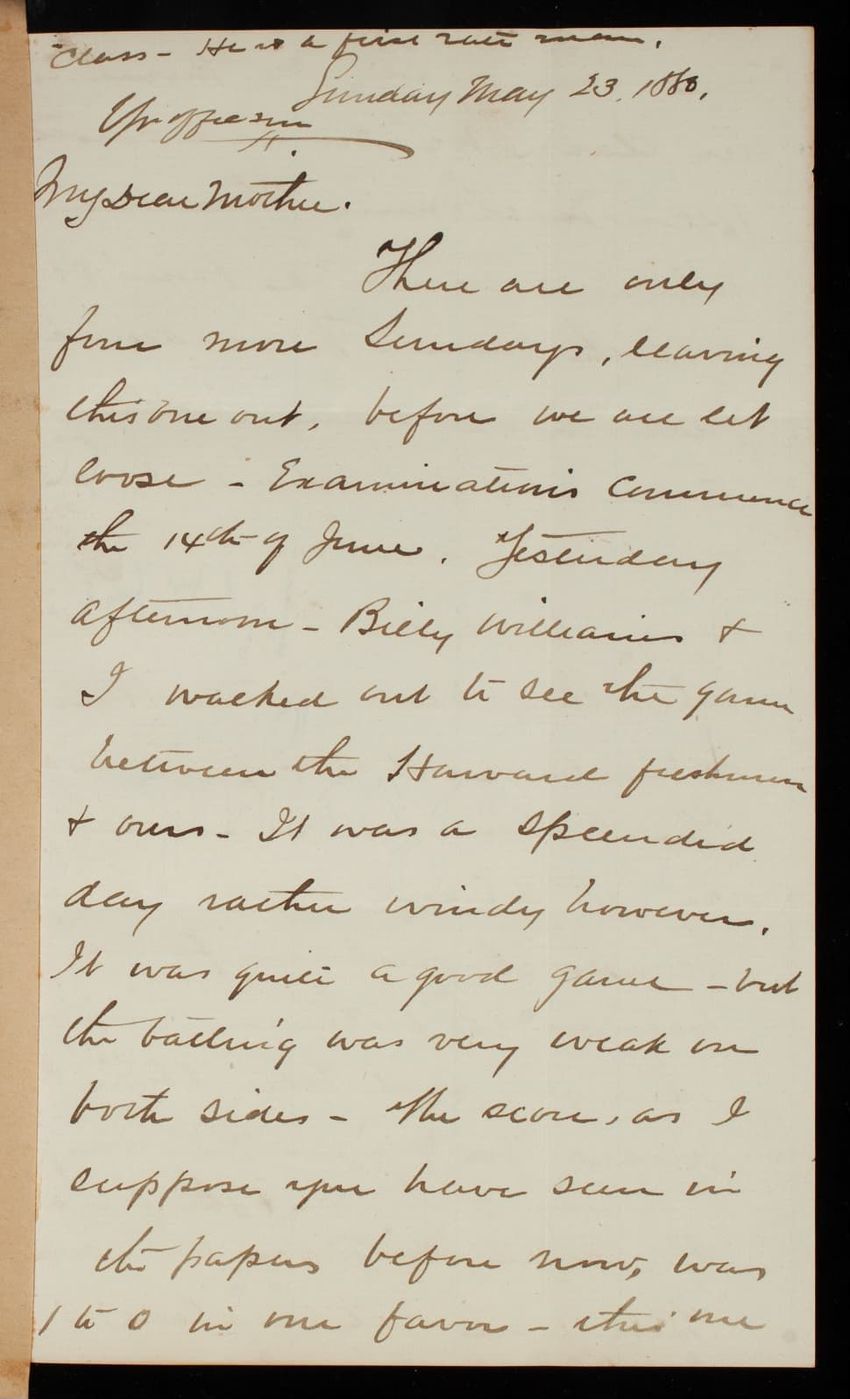 Class - He is a first rate man.
Sunday May 23. 1880.
My Dear Mother.
There are only
four more Sundays, leaving
this one out, before we are let
loose - Examinations commence
the 14th of June. Yesterday
afternoon - Billy Williams &
I walked out to see the game
between the Harvard freshmen
& ours - It was a splendid
day rather windy however.
It was quite a good game - but
the batting was very weak on
both sides - The score, as I
suppose you have seen in
the papers before now, was
1 to 0 in our favor - this one